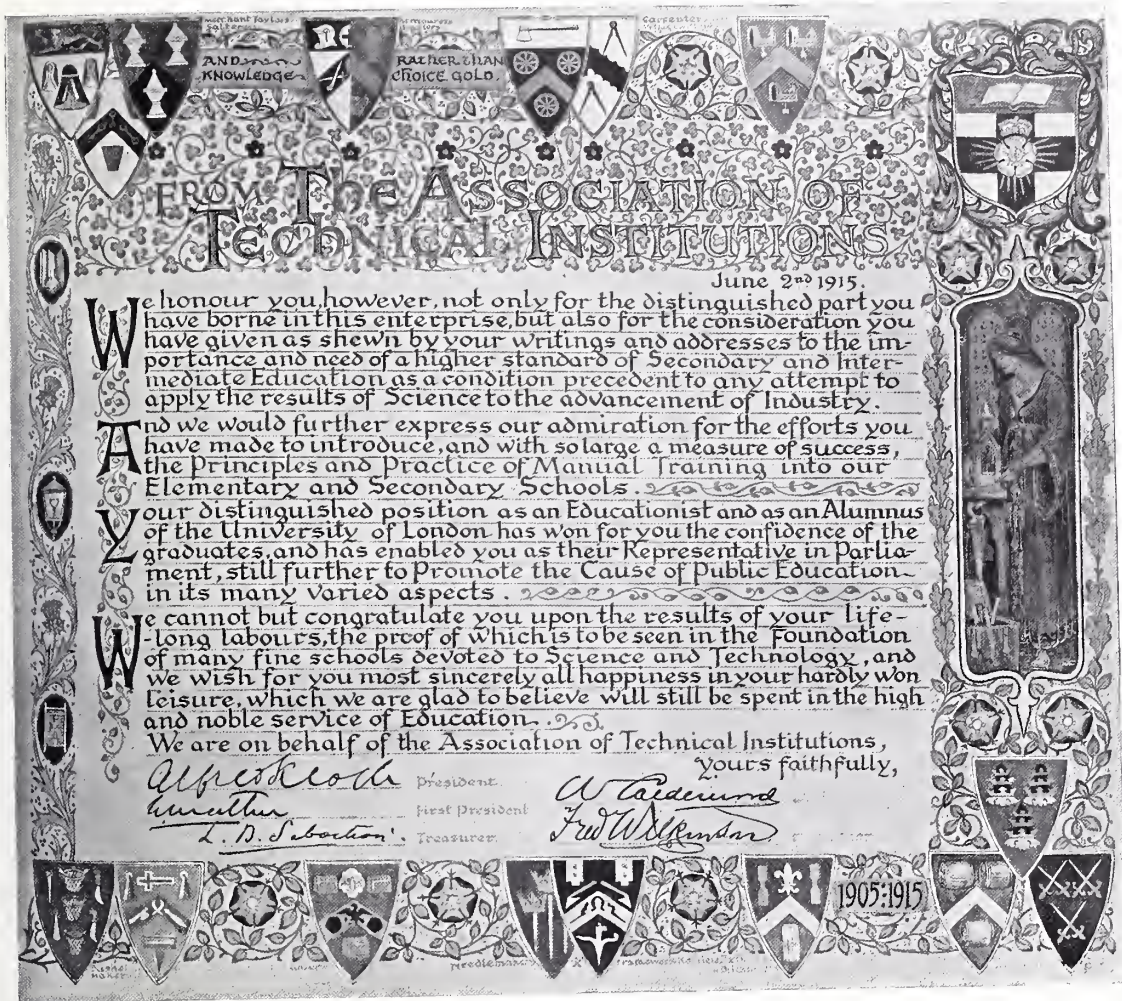 Merchant Taylors
Salters
Carpenter
AND
KNOWLEDGE
RATHER THAN
CHOICE GOLD.
FROM THE ASSOCIATION OF
TECHNICAL INSTITUTIONS
June 2nd 1915.
We honour you, however, not only for the distinguished part you
have borne in this enterprise, but also for the consideration you
have given as shewn by your writings and addresses to the im-
portance and need of a higher standard of Secondary and Inter-
mediate Education as a condition precedent to any attempt to
apply the results of Science to the advancement of Industry.
And we would further express our admiration for the efforts you
have made to introduce, and with so large a measure of success,
the Principles and Practice of Manual Training into our
Elementary and Secondary Schools.
Your distinguished position as an Educationist and as an Alumnus
of the University of London has won for you the confidence of the
graduates, and has enabled you as their Representative in Parlia-
ment, still further to Promote the Cause of Public Education
in its many varied aspects.
We cannot but congratulate you upon the results of your life-
-long labours, the proof of which is to be seen in the Foundation
of many fine schools devoted to Science and Technology, and
we wish for you most sincerely all happiness in your hardly won
leisure, which we are glad to believe will still be spent in the high
and noble service of Education.
We are on behalf of the Association of Technical Institutions,
Yours faithfully,
President.
First President
Treasurer.
Fred Wilkinson
1905:1915
Needlemakers